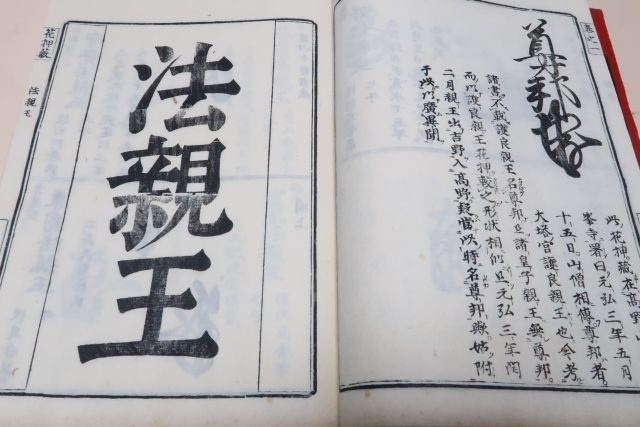 巻之一
此花押藏在高野山
峯寺署曰元弘三年五月
十五日山僧相傳尊邦者
大塔宮護良親王也今考
諸書不載護良親王名尊邦且諸皇子親王無尊邦
而以護良親王花押較之形状相似且元弘三年閏
二月親王出吉野入高野疑當以特名尊邦與姑附
于此以廣異聞
法親王
花押藪
法親王